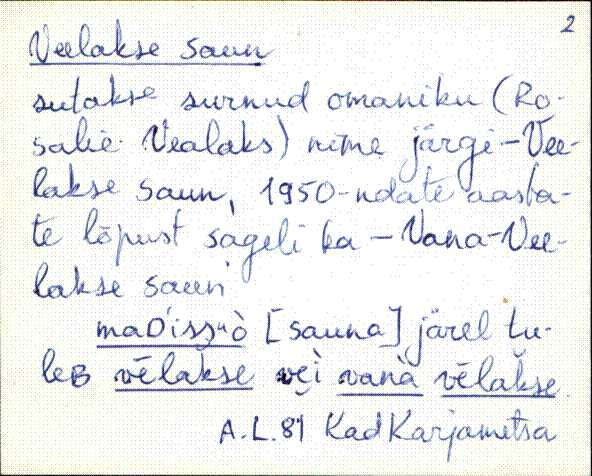 2
Veelakse saun
sutakse surnud omaniku (Ro-
salie Vealaks) nime järgi – Vee-
lakse saun, 1950-ndate aasta-
te lõpust sageli ka – Vana-Vee-
lakse saun
[sauna] järel tu-
leB vēlakse vei vanà vēlakse
A.L. 81 Kad Karjametsa